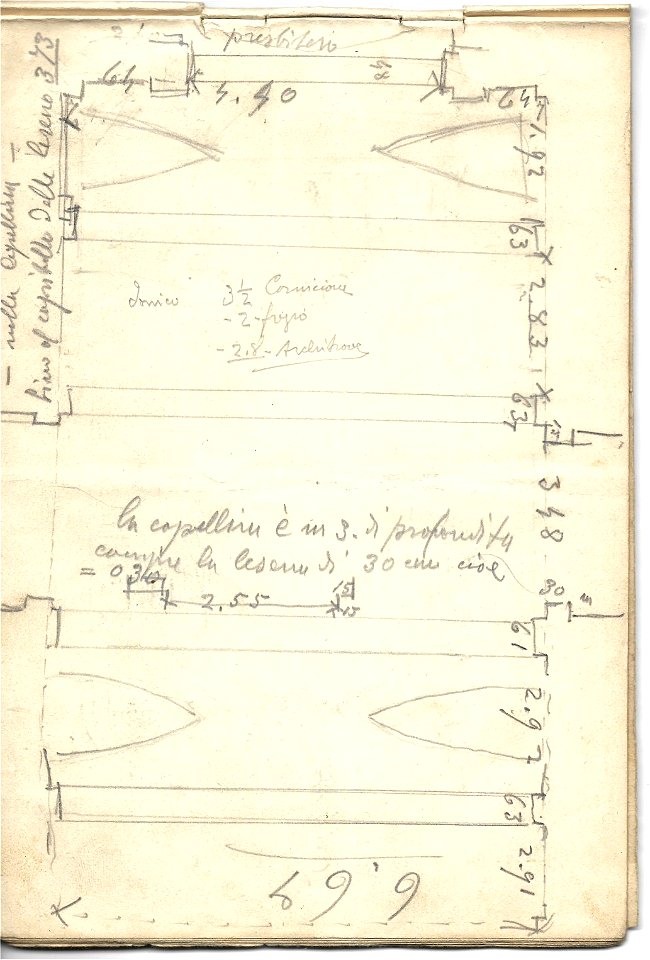 presbitero
48
64
4.40
42
1.92
63
2.83
63
15
3 48
30
15
61
2.92
63
2.91
6.69
— nella Capellina —
fino al capitello delle lesene 373
Ionico 3 1/2 Cornicione
- 2 - fregio
- 2.8 - Architrave
la capellina è m 3. di profondità
compre la lesena di 30 cm cioè
= 0 30 2.55 15
15